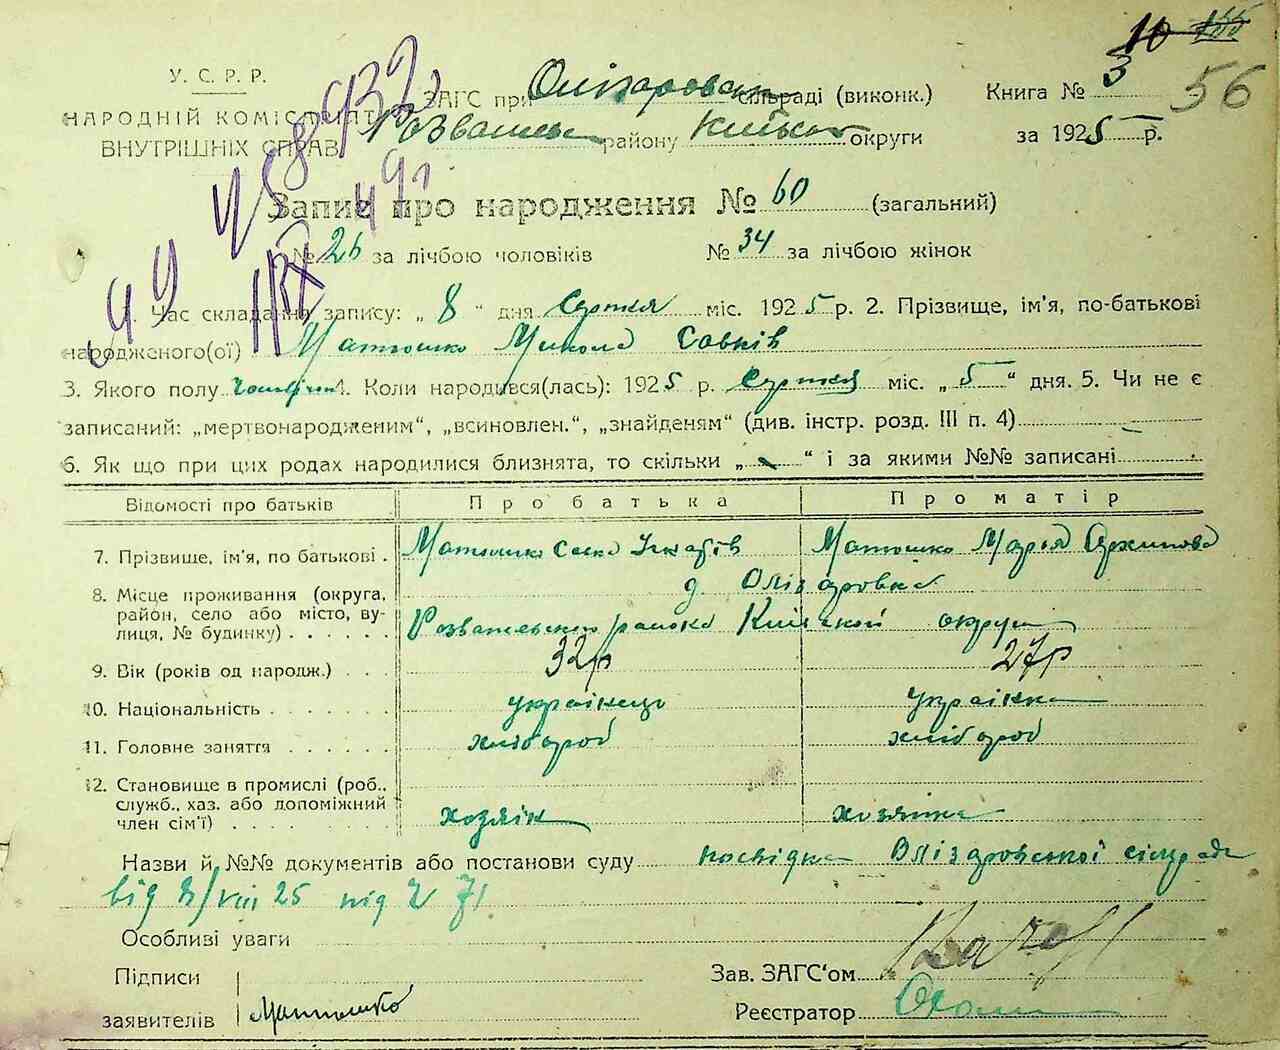 10 155
У. С. Р. Р.
НАРОДНІЙ КОМІСАРІЯТ
ВНУТРІШНІХ СПРАВ
ЗАГС при Олізаровск сільраді (виконк.) Книга № 3 56
Розважев району Київськ округи за 1925 р.
Запис про народження № 60 (загальний)
№ 26 за лічбою чоловіків № 34 за лічбою жінок
1. Час складання запису: „ 8 " дня Серпня міс. 1925 р. 2. Прізвище, ім'я, по-батькові
народженого(ої) Матюшко Микола Савків
3. Якого полу чоловічої 4. Коли народився(лась): 1925 р. Серпня міс. „ 5 " дня. 5. Чи не є
записаний: „мертвонародженим", „всиновлен.", „знайденям" (див. інстр. розд. III п. 4)
6. Як що при цих родах народилися близнята, то скільки „ - " і за якими №№ записані
Відомості про батьків Про батька Про матір
7. Прізвище, ім'я, по батькові . Матюшко Савка Матюшко Марія Архипова
8. Місце проживання (округа, д. Олізаровка
район, село або місто, ву-
лиця, № будинку) . . . . . . Розважевского району Київської округи
9. Вік (років од народж.) . . . 32р 27р
10. Національність . . . . . . . українець українка
11. Головне заняття . . . . . . хлібороб хлібороб
12. Становище в промислі (роб.,
служб., хаз. або допоміжний
член сім'ї) . . . . . . . . . хозяїн хозяйка
Назви й №№ документів або постанови суду посвідка Олізаровської сільради
від 8/VIII 25 під № 71
Особливі уваги
Підписи
заявителів Матюшко
Зав. ЗАГС'ом
Реєстратор